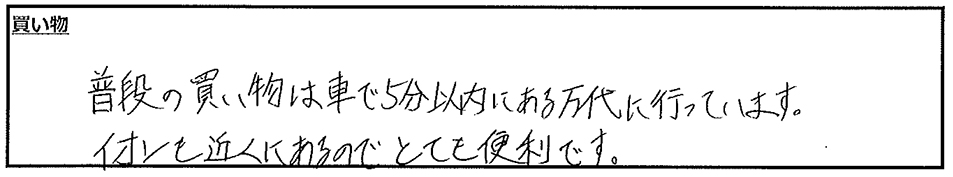 買い物
普段の買い物は車で5分以内にある万代に行っています。
イオンも近くにあるのでとても便利です。